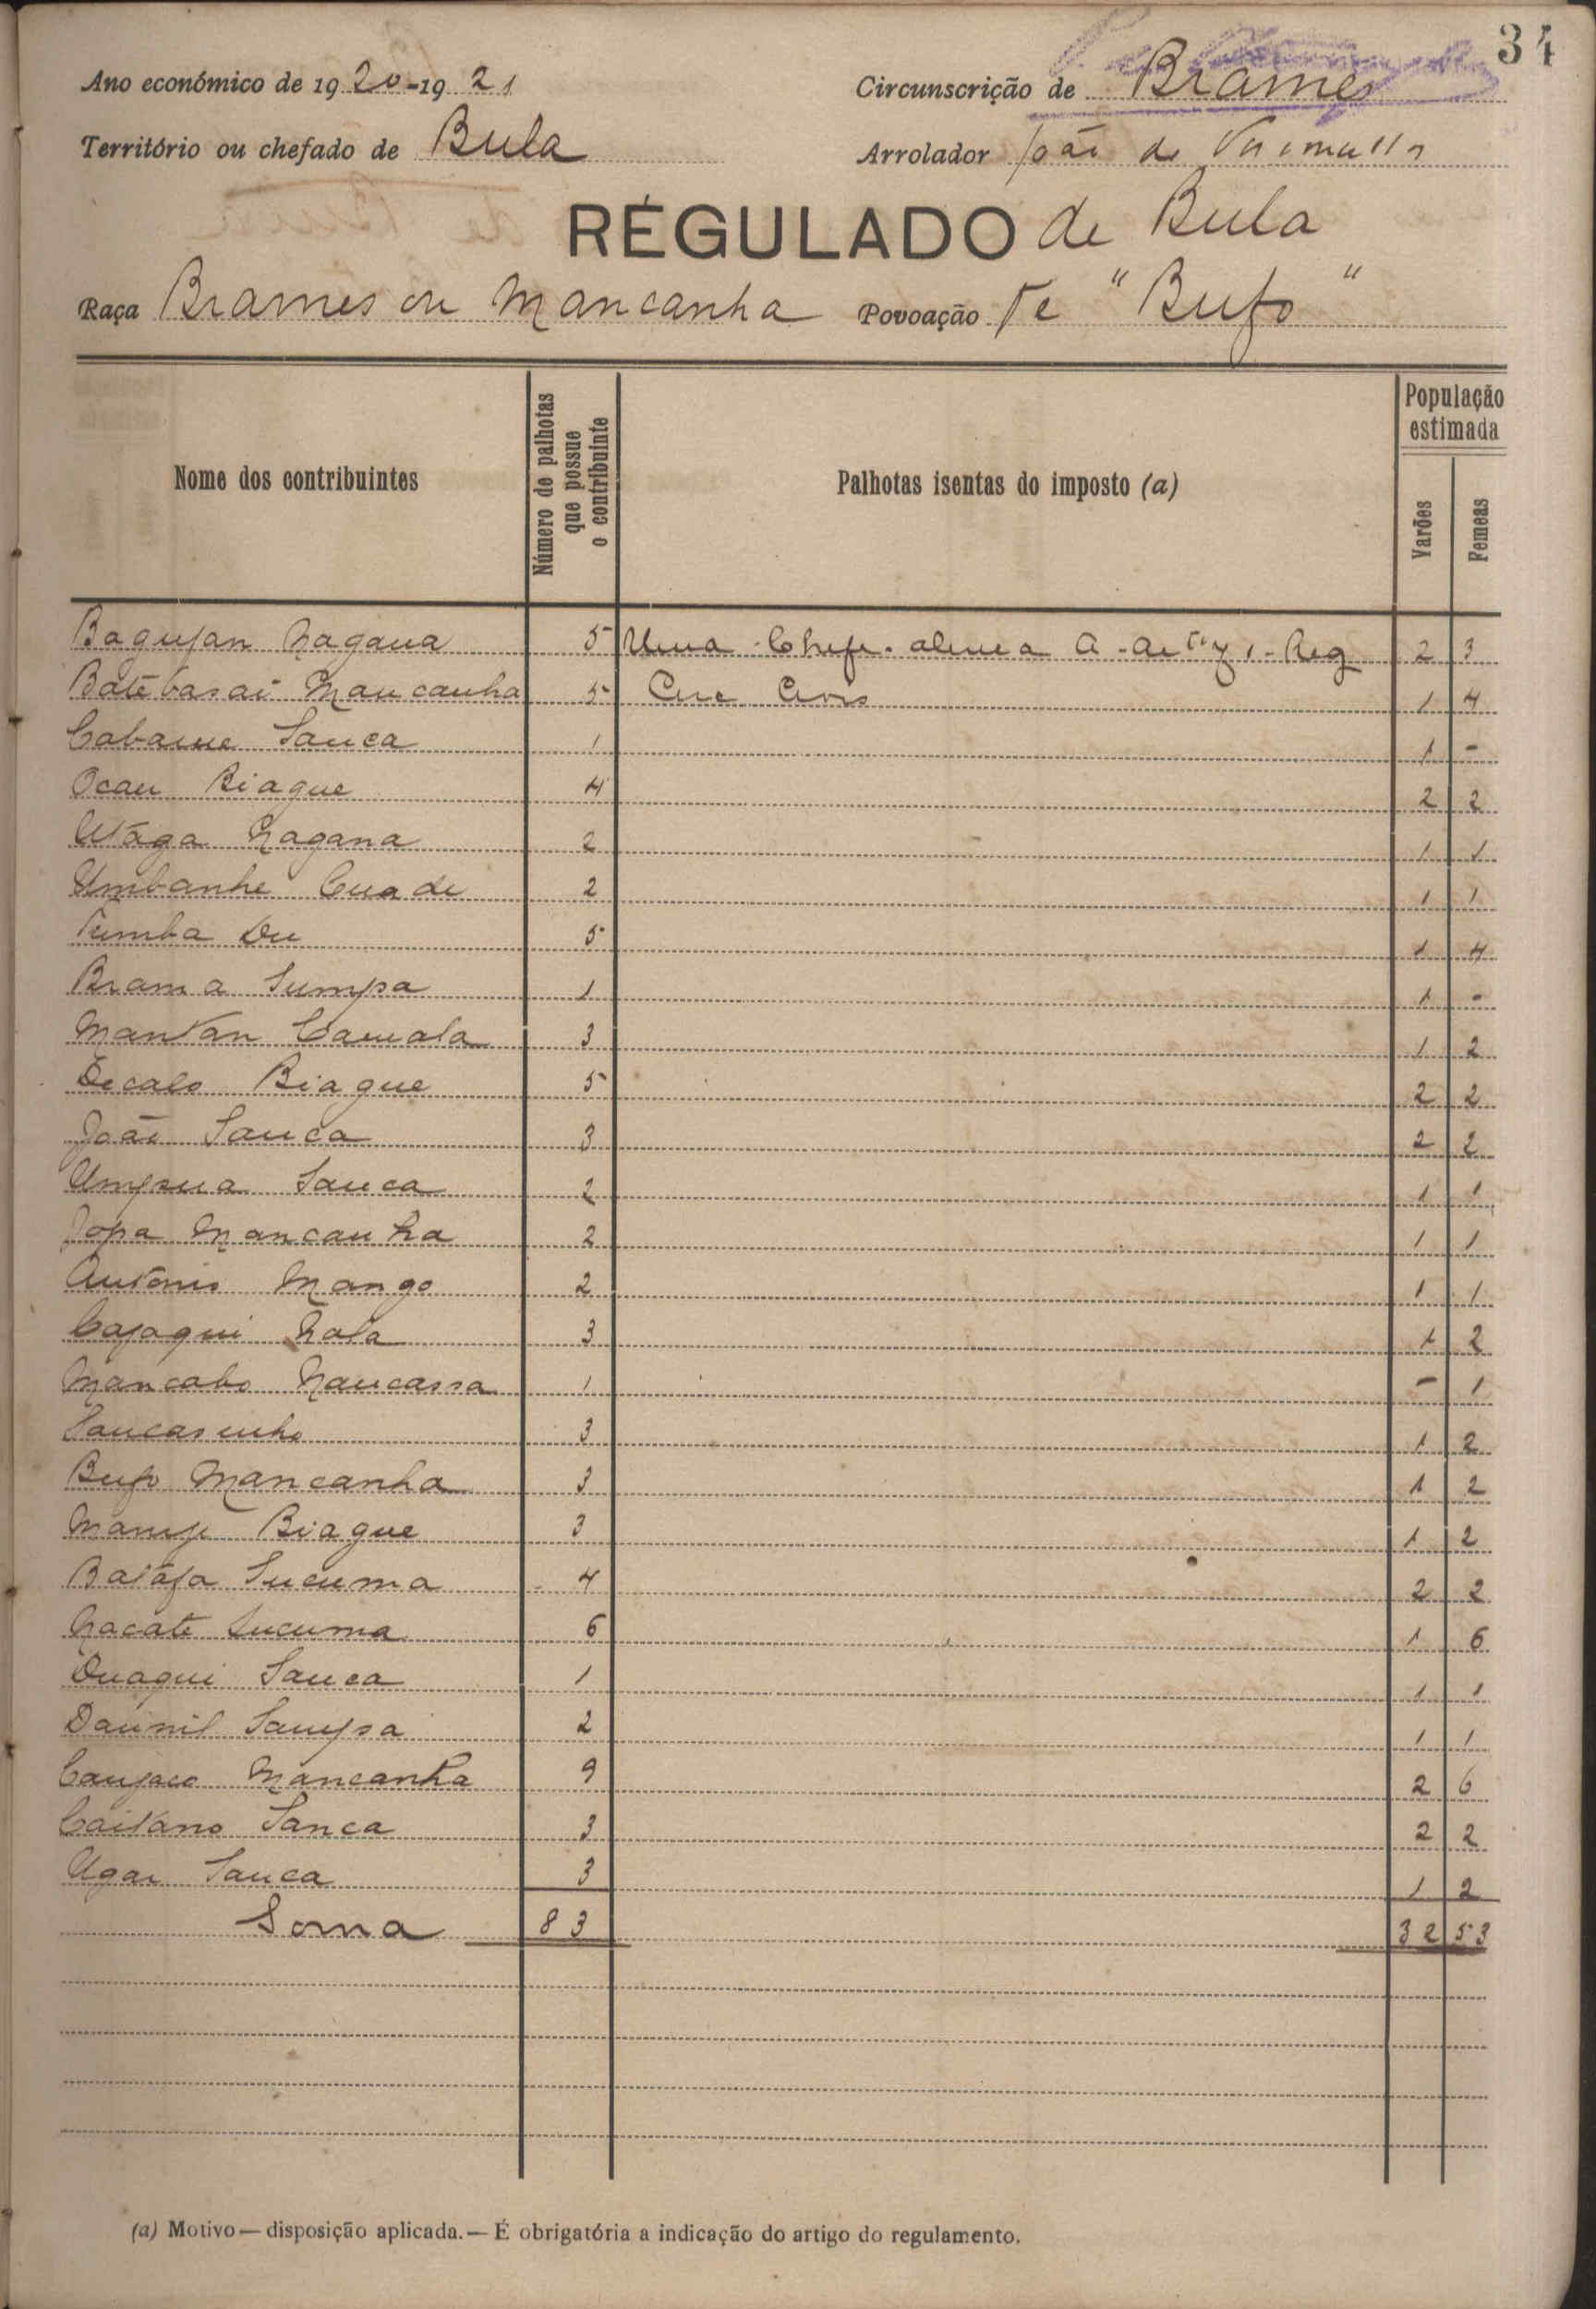 34
Ano económico de 1920-1921 Circunscrição de Brames
Território ou chefado de Bula Arrolador João de
RÉGULADO de Bula
Raça Brames ou Mancanha Povoação De "Bufo"
Nome dos contribuintes Número de palhotas que possue o contribuinte Palhotas isentas do imposto (a) População estimada Varões Femeas
Bagujan Nagana 5 Uma Chefe alinea A Reg 2 3
Batebasai Mancanha 5 1 4
Cabaine Sanca 1 1 -
Ocau Biague 4 2 2
Utaga Nagana 2 1 1
Umbanhe Cuade 2 1 1
Pumba Du 5 1 4
Brama Sumpa 1 1 -
Mantan Camala 3 1 2
Decalo Biague 5 2 2
João Sanca 3 2 2
Umpsua Sanca 2 1 1
Jopa Mancanha 2 1 1
Antonio Mango 2 1 1
Cajaqui Nala 3 1 2
Mancabo Nancassa 1 - 1
3 1 2
Bufo Mancanha 3 1 2
Biague 3 1 2
Batáfa Sucuma 4 2 2
Nacate Sucuma 6 1 6
Quaqui Sanca 1 1 1
Daunil Sampsa 2 1 1
Mancanha 9 2 6
Caitano Sanca 3 2 2
Ugar Sanca 3 1 2
Soma 83 32 53
(a) Motivo—disposição aplicada.—É obrigatória a indicação do artigo do regulamento.